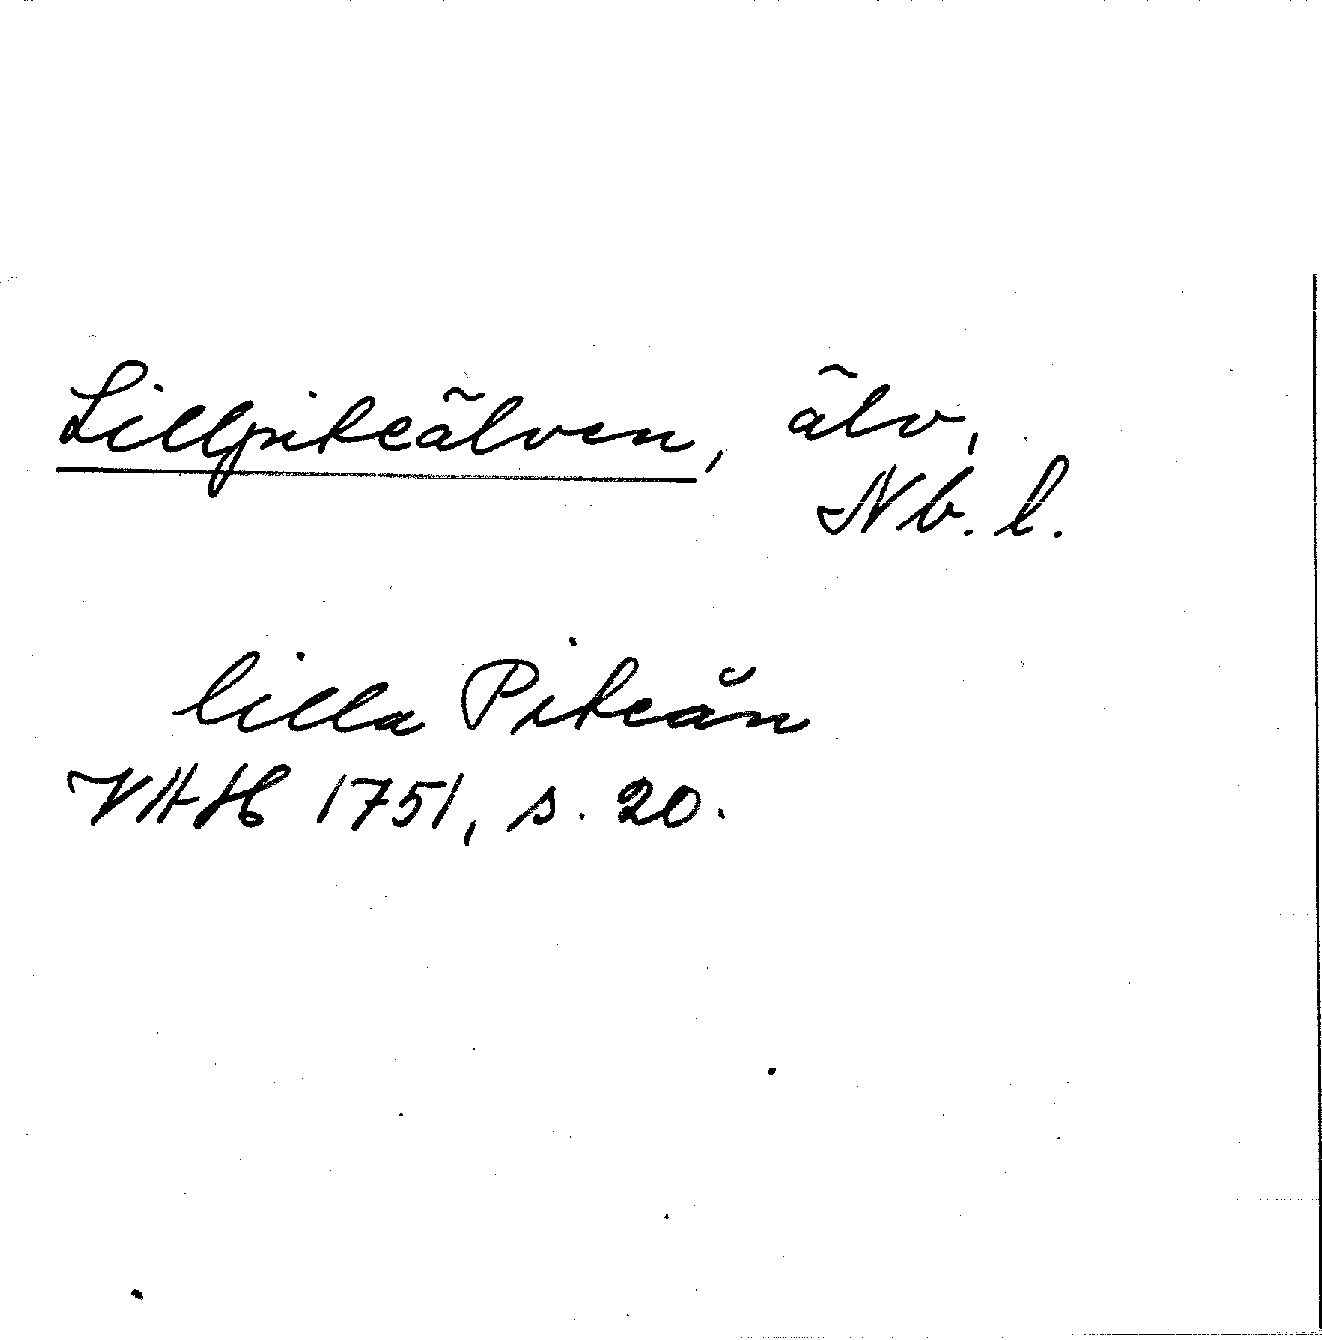 Lillpiteälven, älv,
Nb. l.
lilla Piteån
VAH 1751, s. 20.